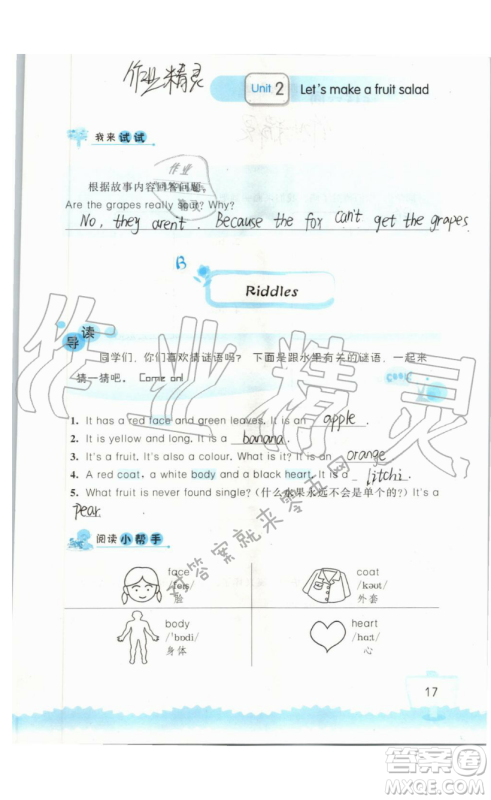 作业精灵
Unit 2 Let's make a fruit salad
我来试试
作业
根据故事内容回答问题。
Are the grapes really sour? Why?
No, they aren't. Because the fox can't get the grapes.
B
Riddles
导读
同学们，你们喜欢猜谜语吗？ 下面是跟水果有关的谜语，一起来
猜一猜吧。 Come on!
1. It has a red face and green leaves. It is an apple.
2. It is yellow and long. It is a banana.
3. It's a fruit. It's also a colour. What is it? It is an orange
4. A red coat, a white body and a black heart. It is a litchi.
5. What fruit is never found single? (什么水果永远不会是单个的？) It's a
pear.
阅读小帮手
face
脸
coat
/kəʊt/
外套
body
/ˈbɒdi/
身体
heart
/hɑːt/
心
17
作业精灵
查答案就来零五网
答案圈
MXQE.COM